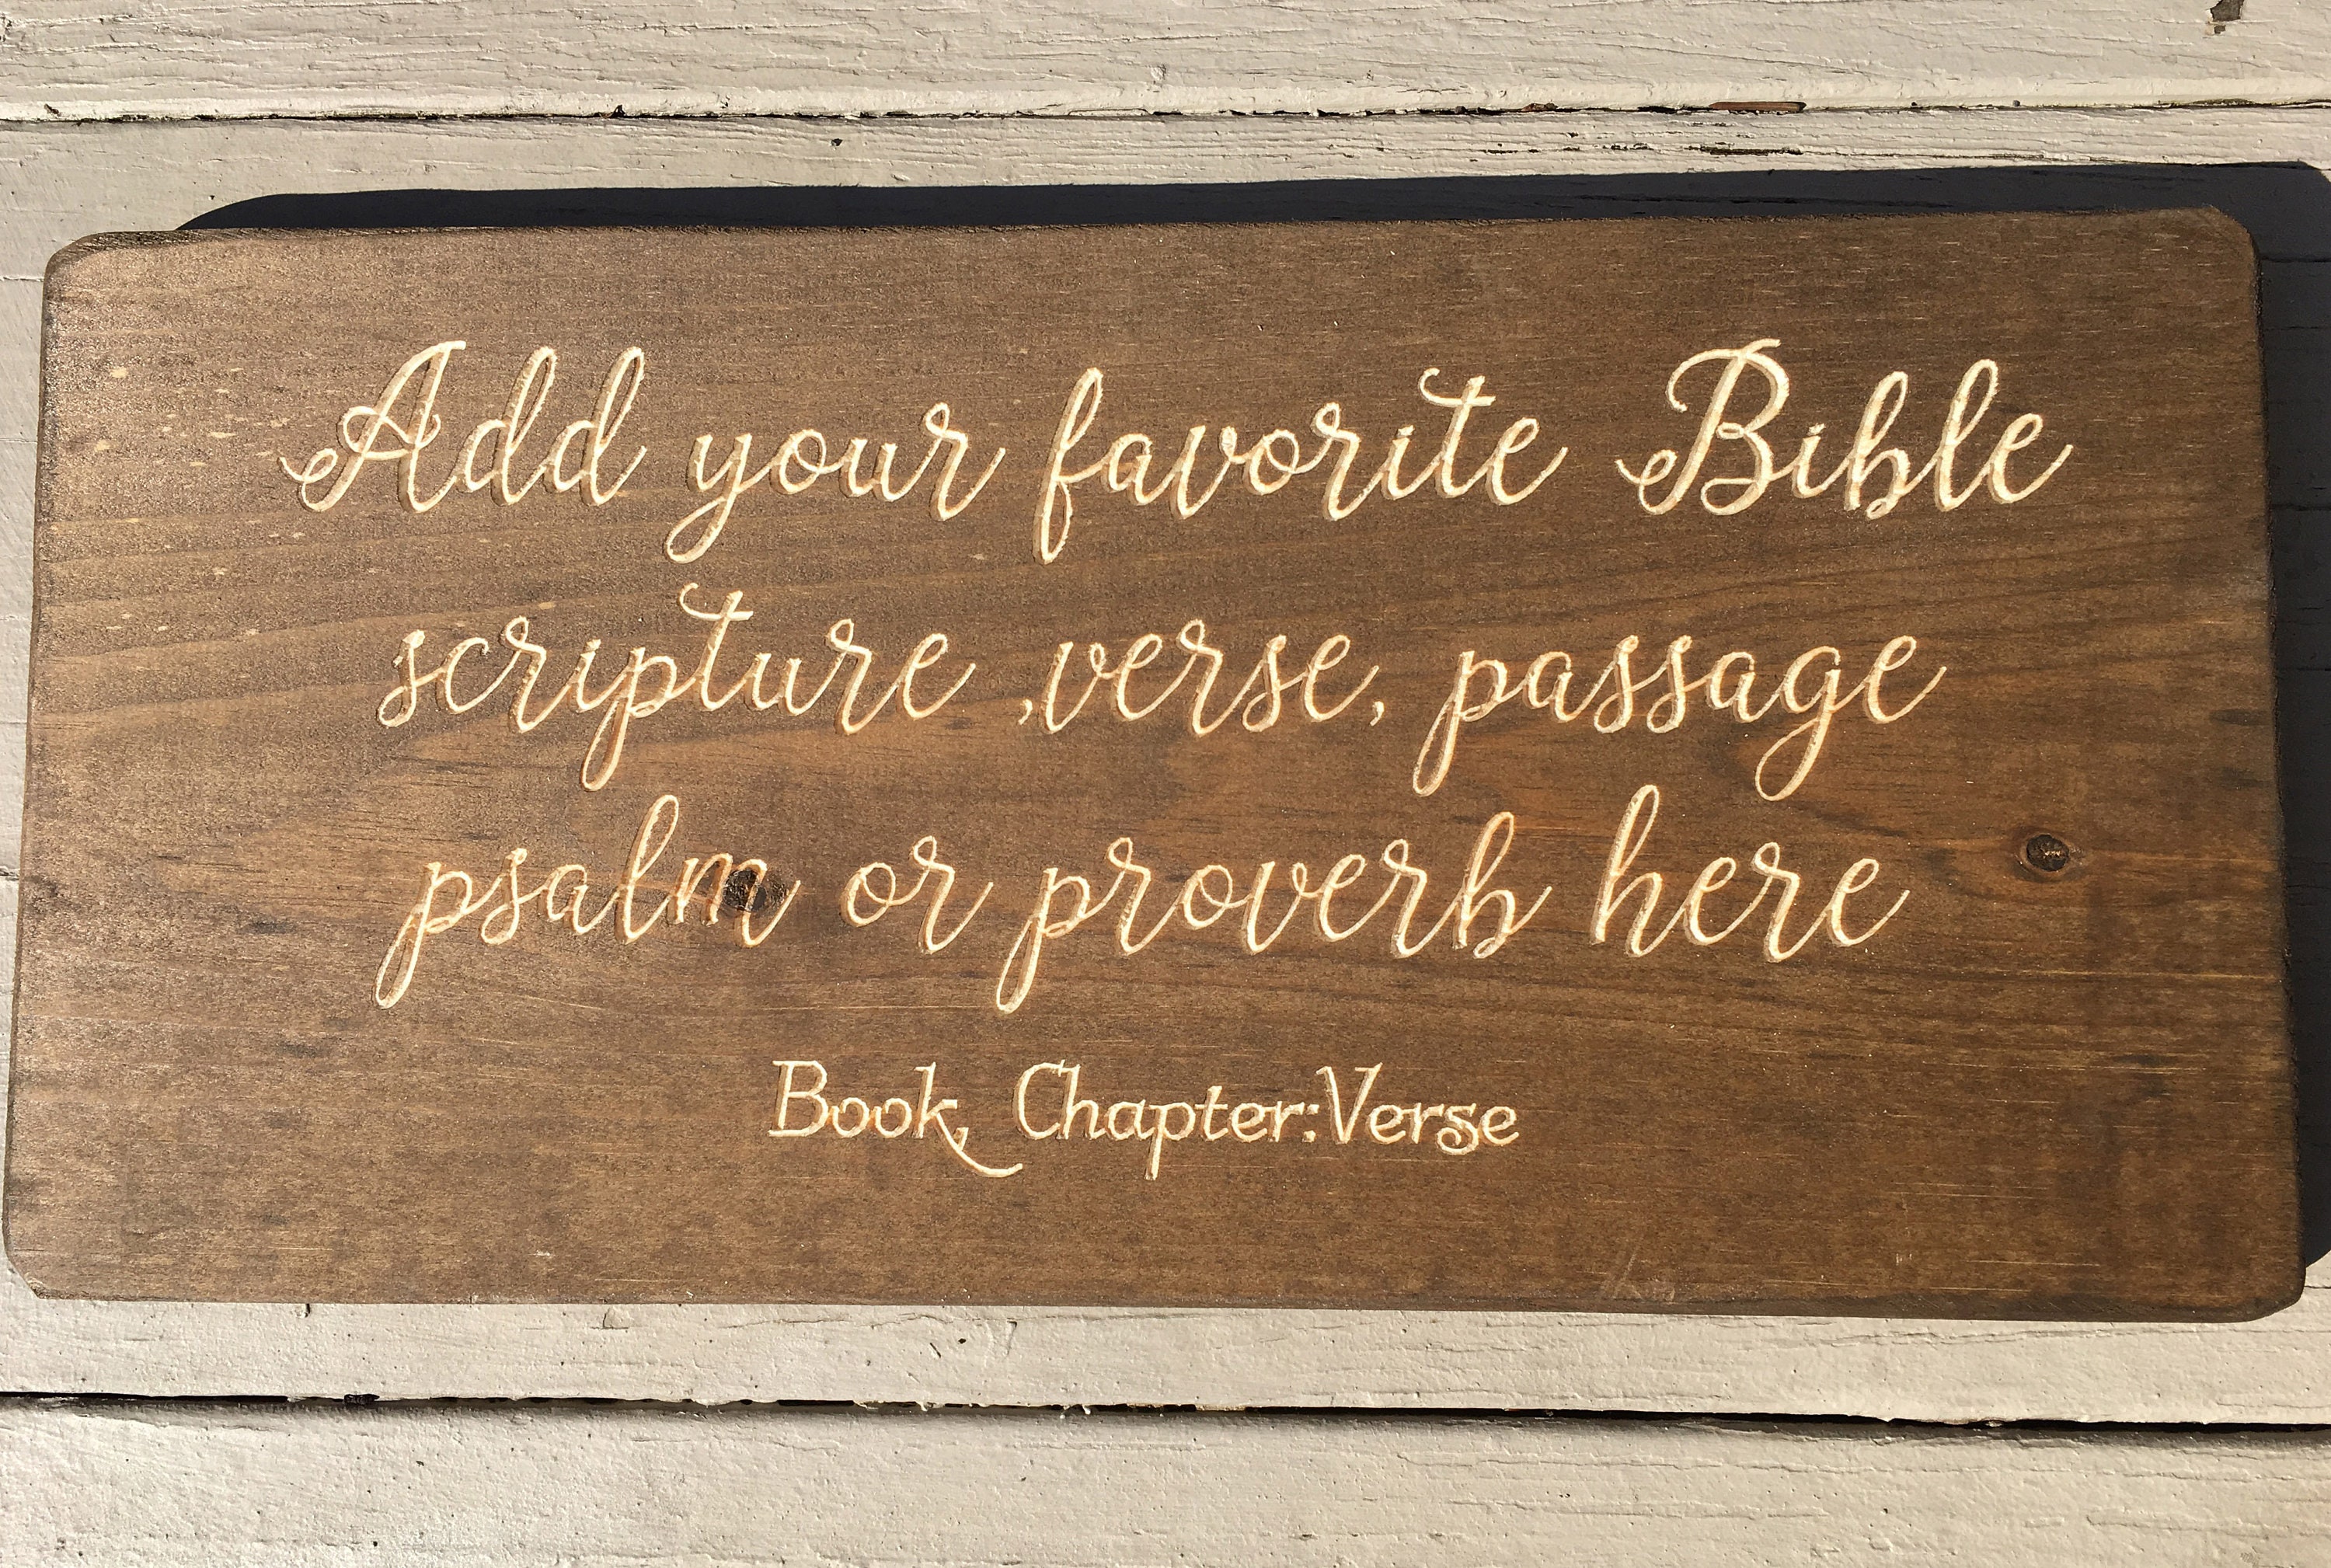 Add your favorite Bible
scripture ,verse, passage
psalm or proverb here
Book, Chapter:Verse